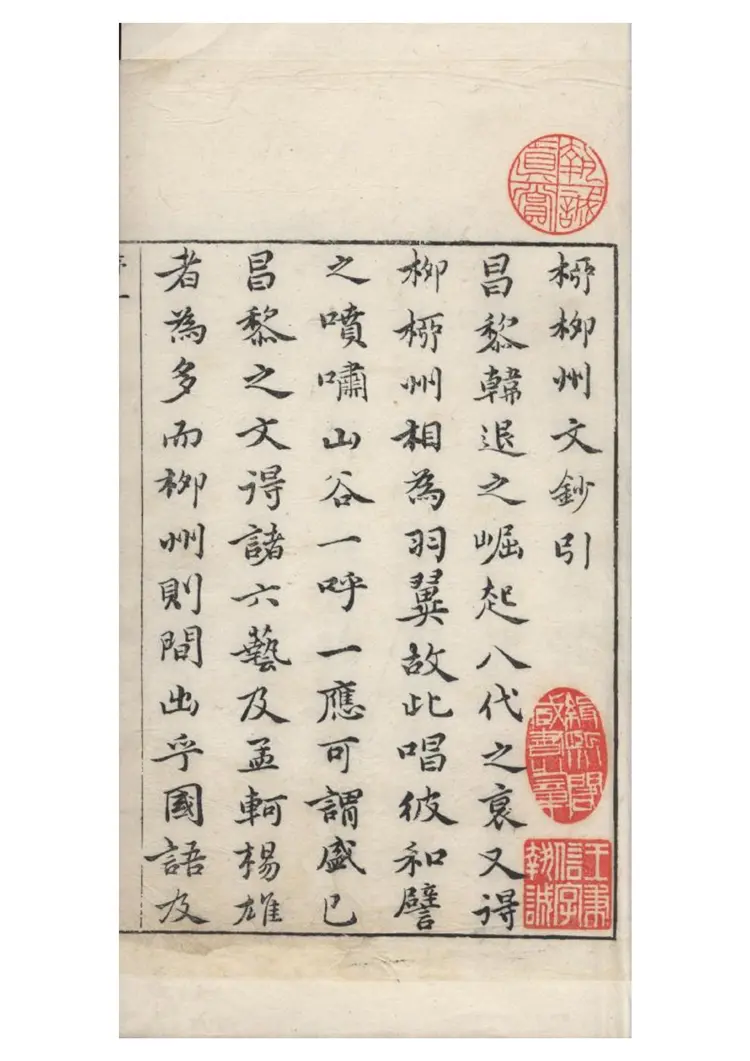 執誠
真賞
桞栁州文鈔引
昌黎韓退之崛起八代之衰又得
栁桞州相為羽翼故此唱彼和譬
之噴嘯山谷一呼一應可謂盛已
昌黎之文得諸六藝及孟軻楊雄
者為多而栁州則間出乎國語及
王秉
信字
執誠